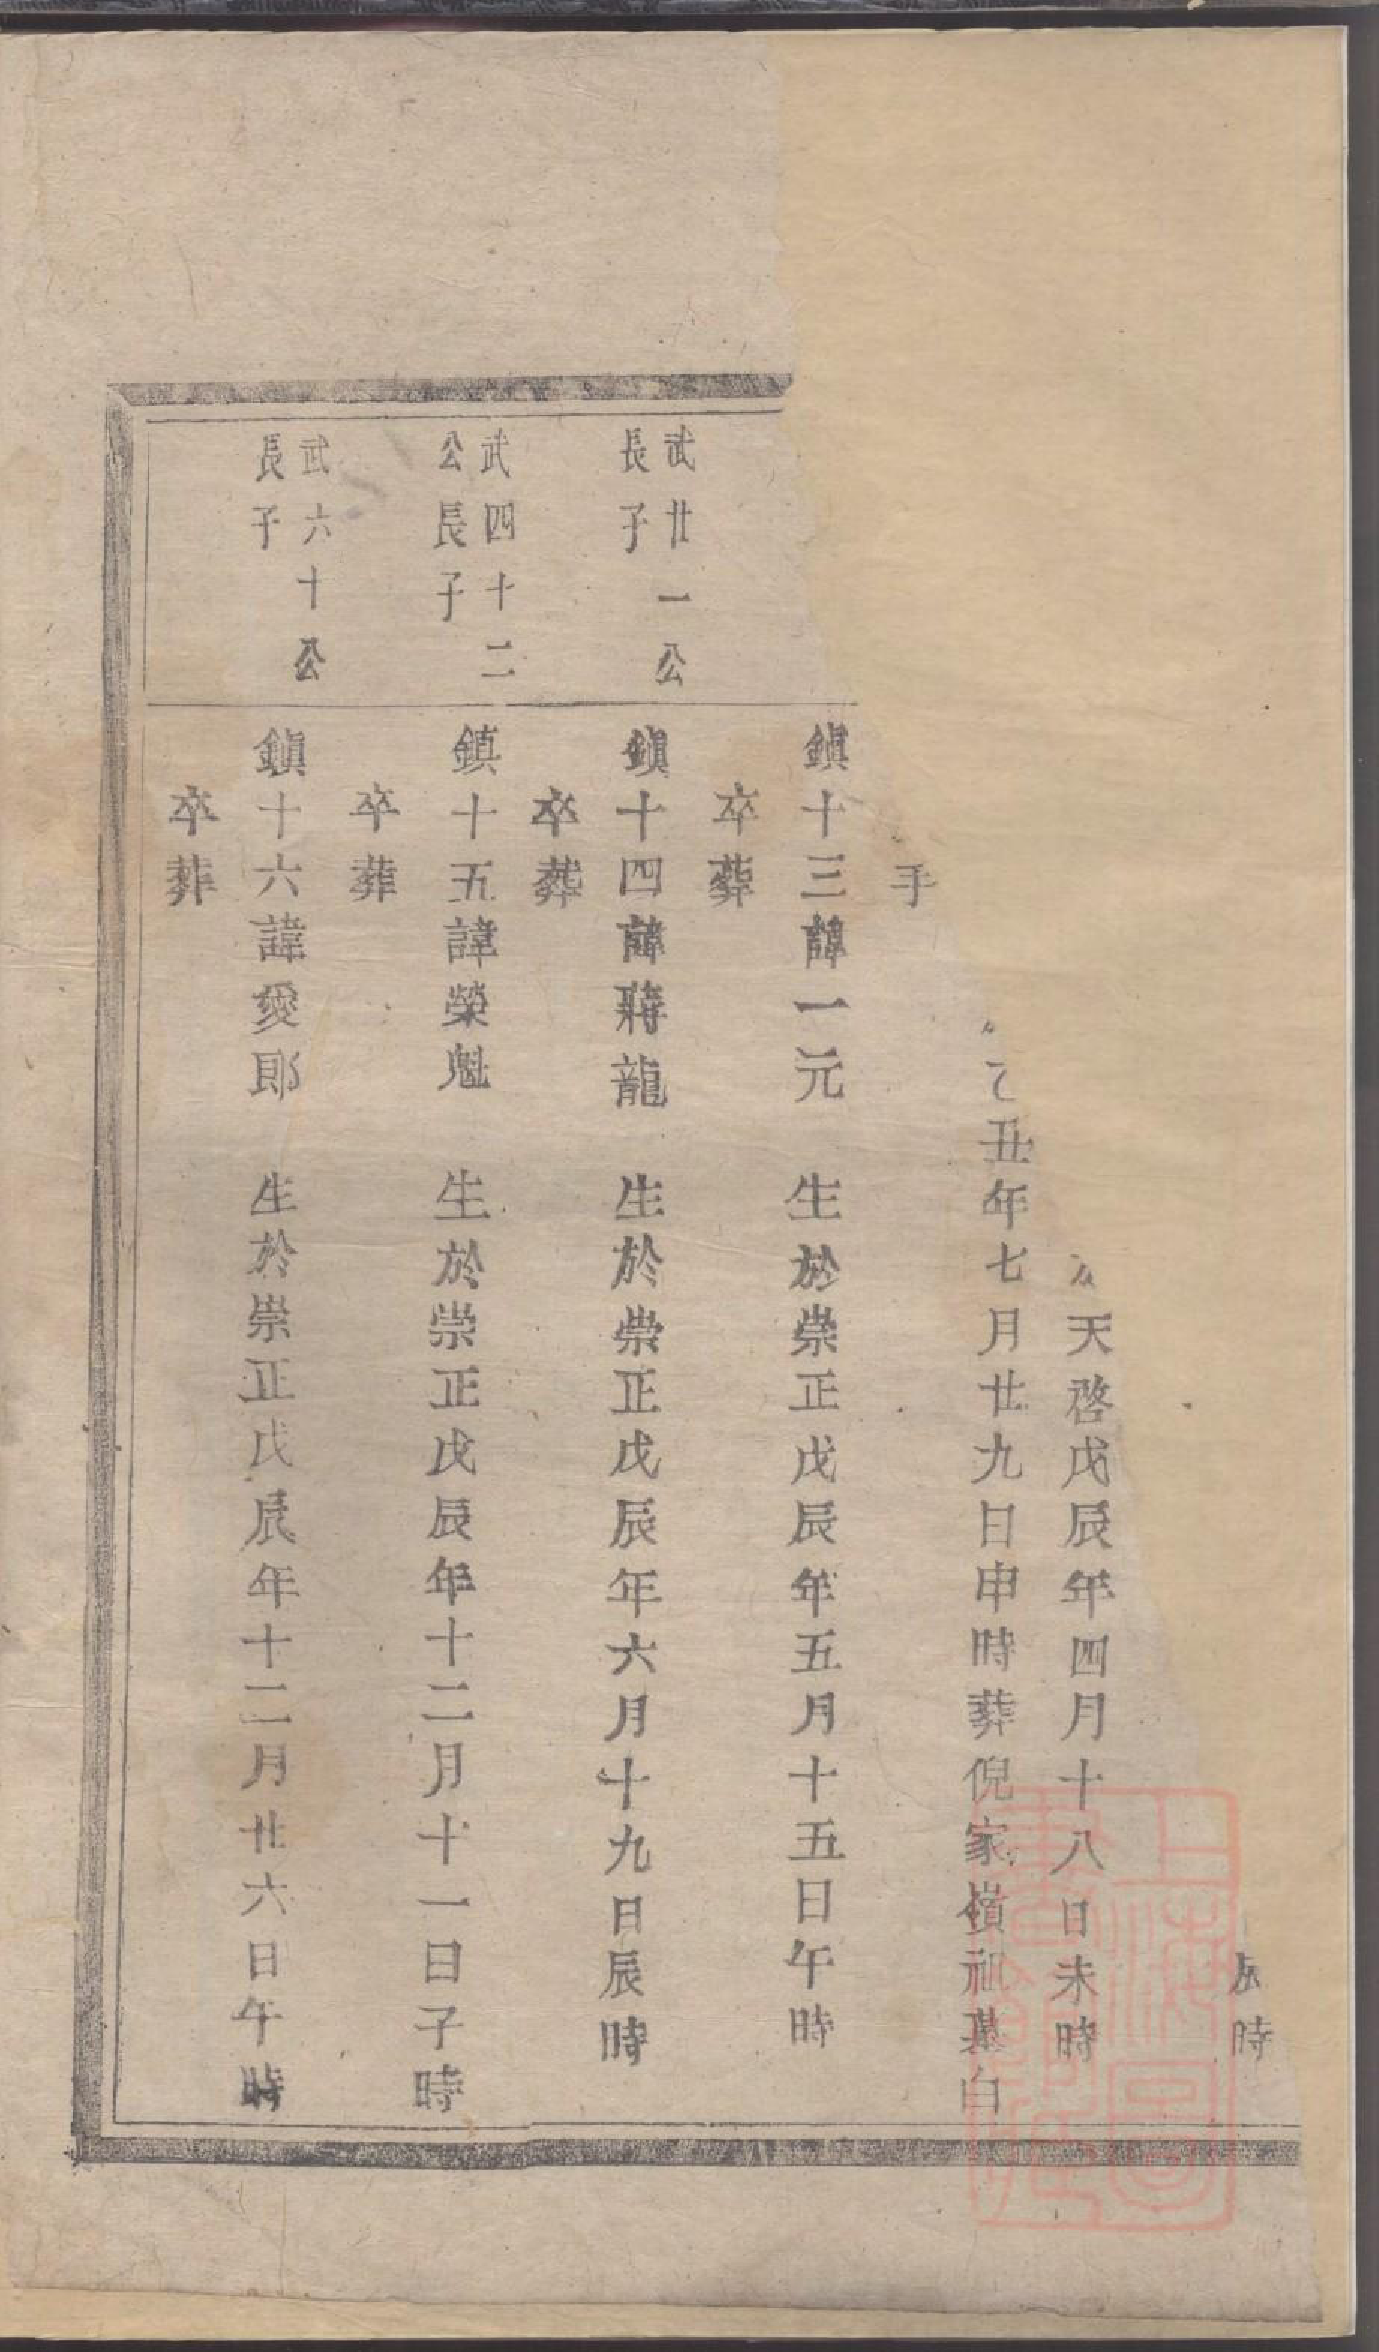 辰時
天啓戊辰年四月十八日未時
乙丑年七月廿九日申時葬倪家嶺祖墓白
手
鎮十三諱一元 生於崇正戊辰年五月十五日午時
卒葬
武廿一公
長子
鎮十四諱蔣龍 生於崇正戊辰年六月十九日辰時
卒葬
武四十二
公長子
鎮十五諱榮魁 生於崇正戊辰年十二月十一日子時
卒葬
武六十公
長子
鎮十六諱愛郎 生於崇正戊辰年十二月廿六日午時
卒葬
上海圖書館藏